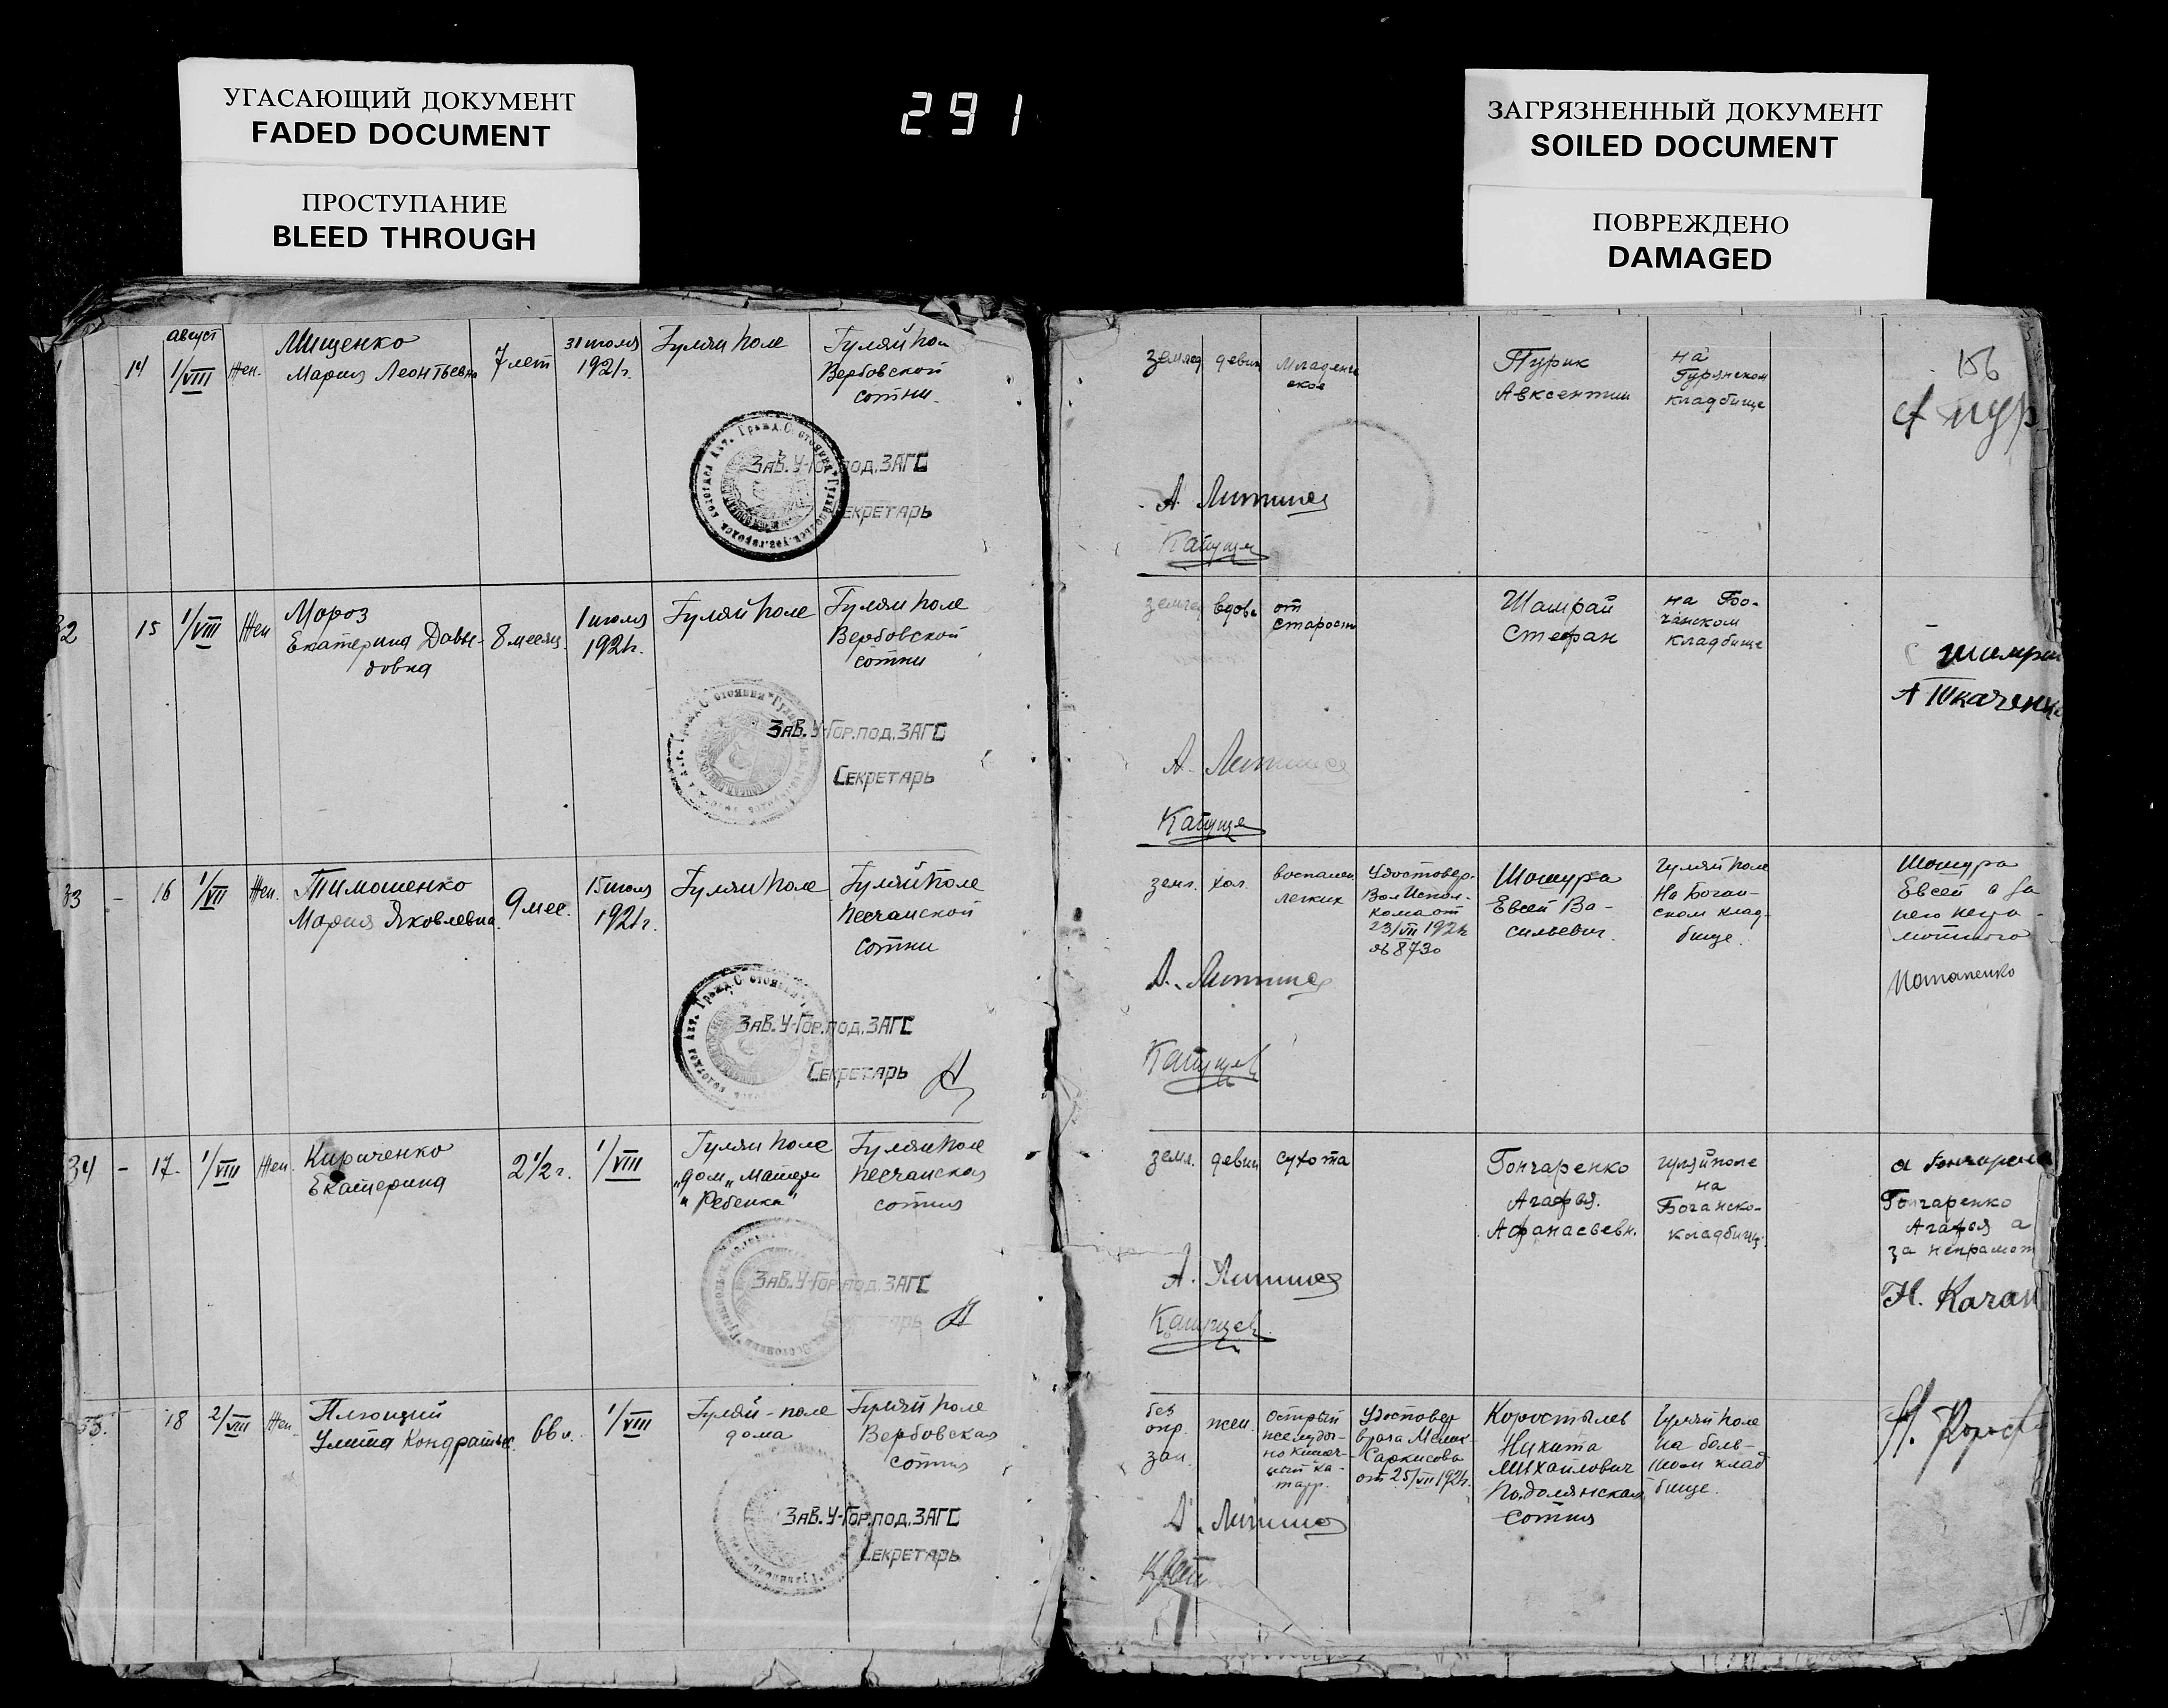 УГАСАЮЩИЙ ДОКУМЕНТ
FADED DOCUMENT
ПРОСТУПАНИЕ
BLEED THROUGH
291
ЗАГРЯЗНЕННЫЙ ДОКУМЕНТ
SOILED DOCUMENT
ПОВРЕЖДЕНО
DAMAGED
14
август
1/VIII
Жен.
Мищенко
Мария Леонтьевна
7 лет
31 июля
1921г.
Гуляй поле
Гуляй пол
Вербовской
сотни.
ЗАВ. У-ГОР.ПОД. ЗАГС
СЕКРЕТАРЬ
землед
девиц
младенче
ская
Пурик
Авксентий
на
Гурянском
кладбище
156
А Пур
А. Литвинов
32
15
1/VIII
Жен
Мороз
Екатерина Давы-
довна
8 месяц.
1 июля
1921г.
Гуляй поле
Гуляй поле
Вербовской
сотни
ЗАВ. У-ГОР.ПОД. ЗАГС
СЕКРЕТАРЬ
землед
вдова
от
старости
Шамрай
Стефан
на Бо-
чанском
кладбище
Шамрай
А Ткаченко
33
-
16
1/VII
Жен.
Тимошенко
Мария Яковлевна.
9 мес.
15 июля
1921г.
Гуляй поле
Гуляй поле
песчанской
сотни
ЗАВ. У-ГОР.ПОД. ЗАГС
СЕКРЕТАРЬ
земл.
хол.
воспален.
легких
Удостовер.
ВолИспол-
кома от
23/VII 1921г
№ 8730
Шошура
Евсей Ва-
сильевич.
Гуляй поле
На Боган-
ском клад-
бище.
Шошура
Евсей а за
него негра-
мотного
Потапенко
34
-
17.
1/VIII
Жен.
Кириченко
Екатерина
2 1/2 г.
1/VIII
Гуляй поле
"дом" матери
" Ребенка"
Гуляй поле
песчанская
сотня
ЗАВ. У-ГОР.ПОД. ЗАГС
СЕКРЕТАРЬ
земл.
девиц
сухота
Гончаренко
Агафья.
Афанасьевн.
гуляй поле
на
Боганско-
кладбищ.
а Гончарен
Гончаренко
Агафья а
за неграмот
Н. Качан
35.
18
2/VIII
Жен.
Плющий
Улита Кондратьев.
66 л.
1/VIII
Гуляй-поле
дома
Гуляй поле
Вербовская
сотня
ЗАВ. У-ГОР.ПОД. ЗАГС
СЕКРЕТАРЬ
без
опр.
зан.
жен.
острый
желудоч-
но кишеч-
ный ка-
тарр.
Удостовер
врача Мелик-
Саркисова
от 25/VII 1921г.
Коростылев
Никита
Михайлович
Подолянская
Сотня
Гуляй поле
на боль-
шом клад
бище.